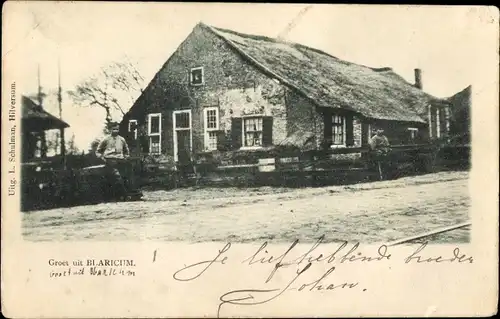 Uitg. L. Schulman, Hilversum.
Groet uit BLARICUM.
Groet uit Blaricum
Je liefhebbende broeder
Johan.